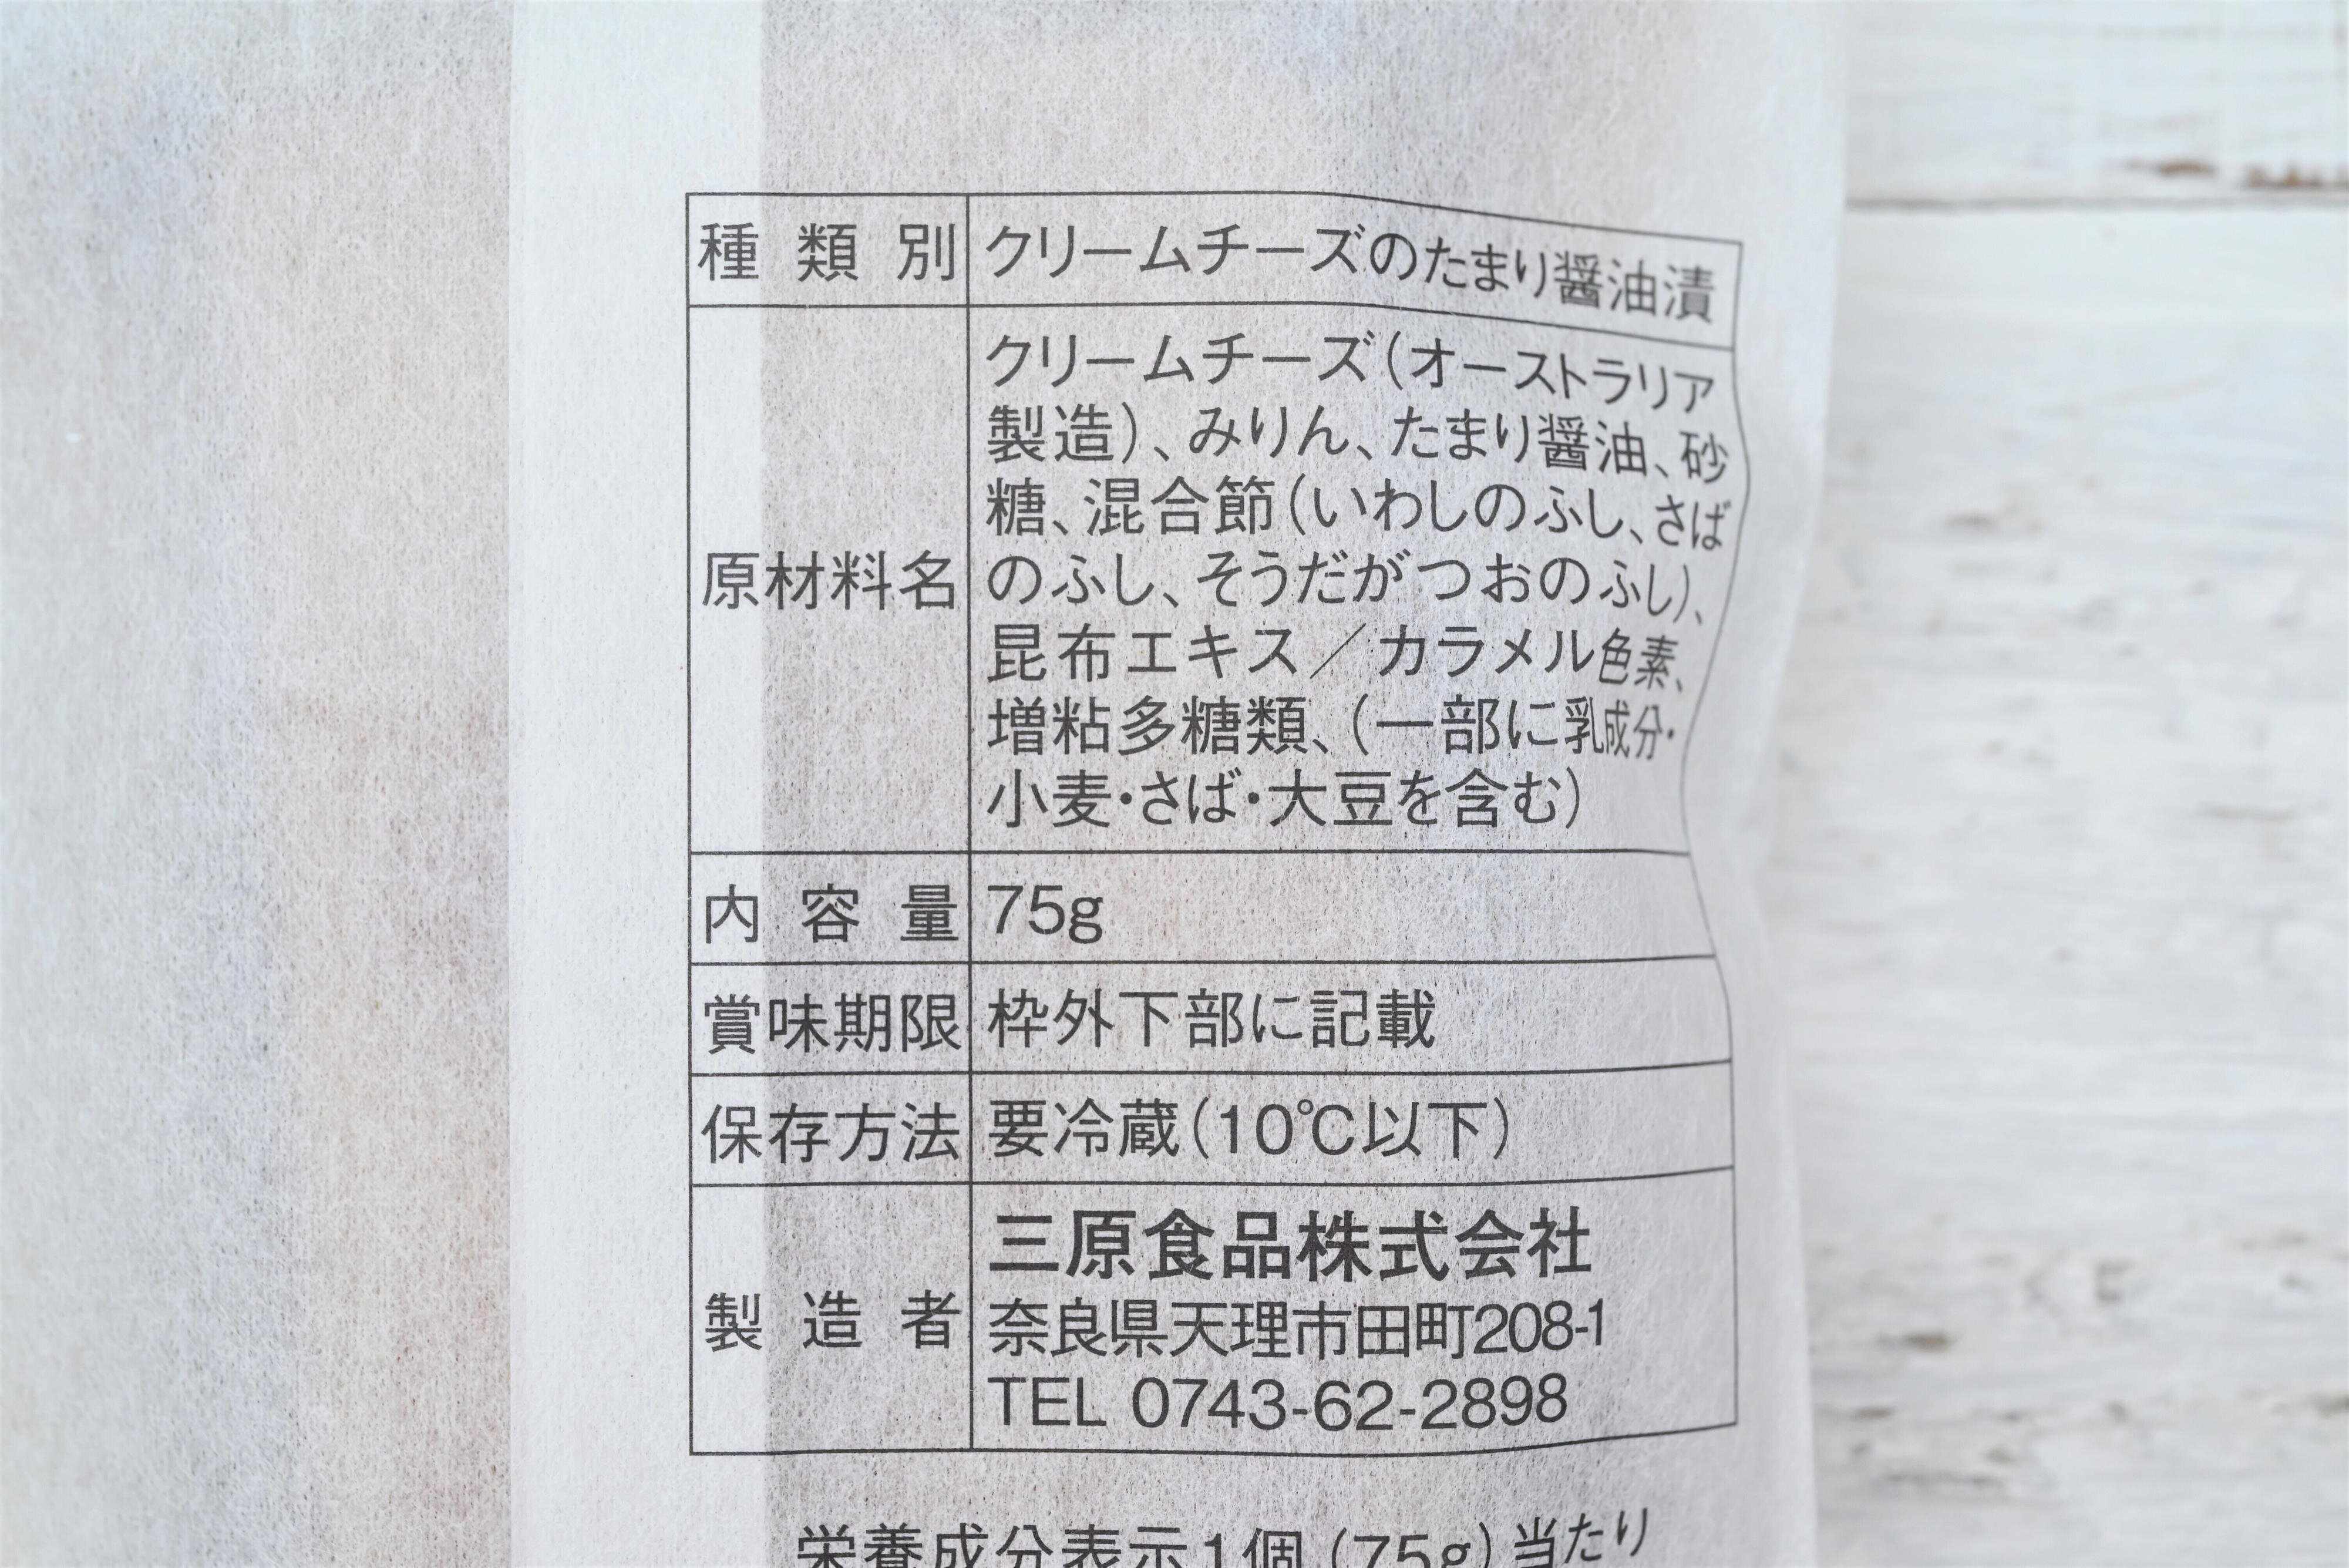 種類別 クリームチーズのたまり醤油漬
原材料名 クリームチーズ(オーストラリア
製造)、みりん、たまり醤油、砂
糖、混合節(いわしのふし、さば
のふし、そうだがつおのふし)、
昆布エキス/カラメル色素、
増粘多糖類、(一部に乳成分・
小麦・さば・大豆を含む)
内容量 75g
賞味期限 枠外下部に記載
保存方法 要冷蔵(10℃以下)
製造者 三原食品株式会社
奈良県天理市田町208-1
TEL 0743-62-2898
栄養成分表示1個(75g)当たり